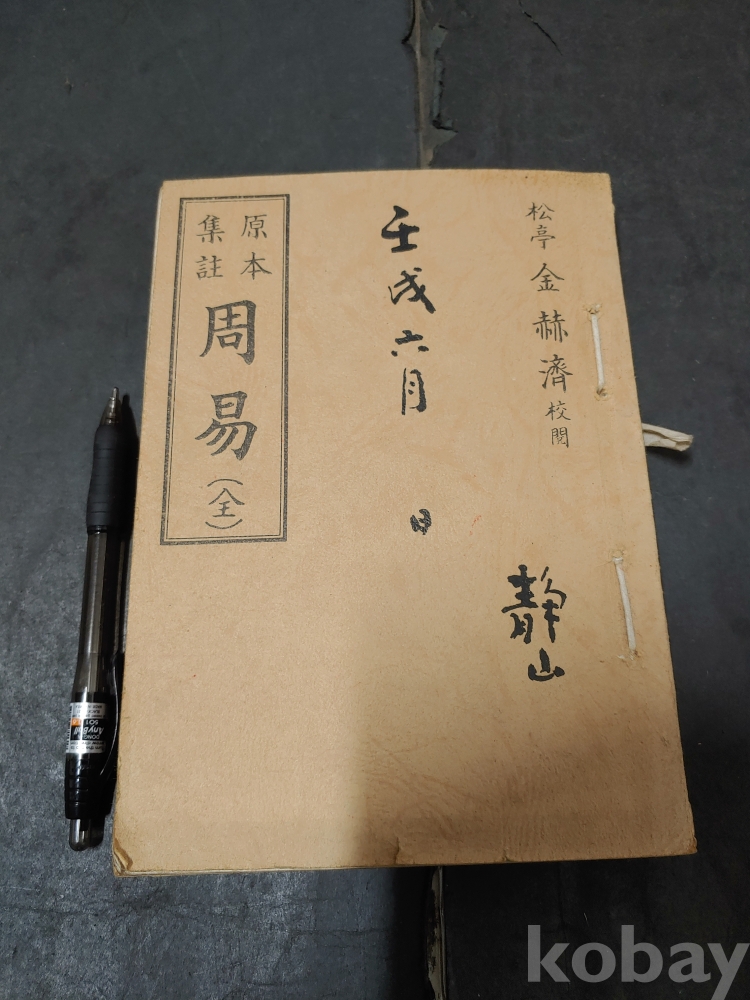 松亭 金赫濟 校閱
壬戌六月 日
靜山
原本
集註
周易(全)
Anyball
501
DONG-A
kobay